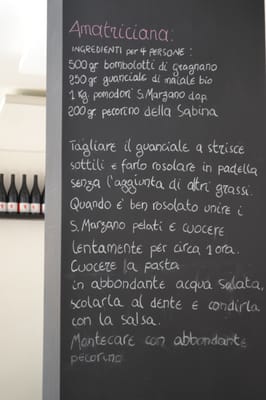 Amatriciana:
INGREDIENTI per 4 PERSONE:
500gr bombolotti di gragnano
250gr guanciale di maiale bio
1 Kg pomodori S. Marzano d.o.p.
200gr pecorino della Sabina
Tagliare il guanciale a strisce
sottili e farlo rosolare in padella
senza l'aggiunta di altri grassi.
Quando e' ben rosolato unire i
S. Marzano pelati e cuocere
lentamente per circa 1 ora.
Cuocere la pasta
in abbondante acqua salata,
scolarla al dente e condirla
con la salsa.
Mantecare con abbondante
pecorino